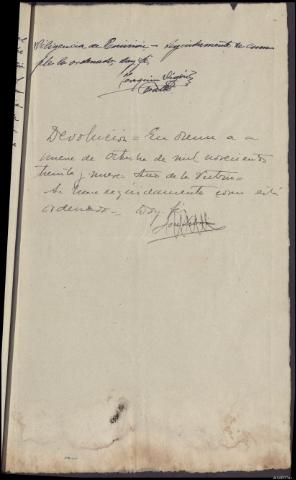 Diligencia de Emisión = Seguidamente se cum
ple lo ordenado, doy fe
Joaquin
Devolucion = En a
nueve de Octubre de mil novecientos
treinta y nueve Año de la Victoria =
Se hace seguidamente como está
ordenado = Doy fe